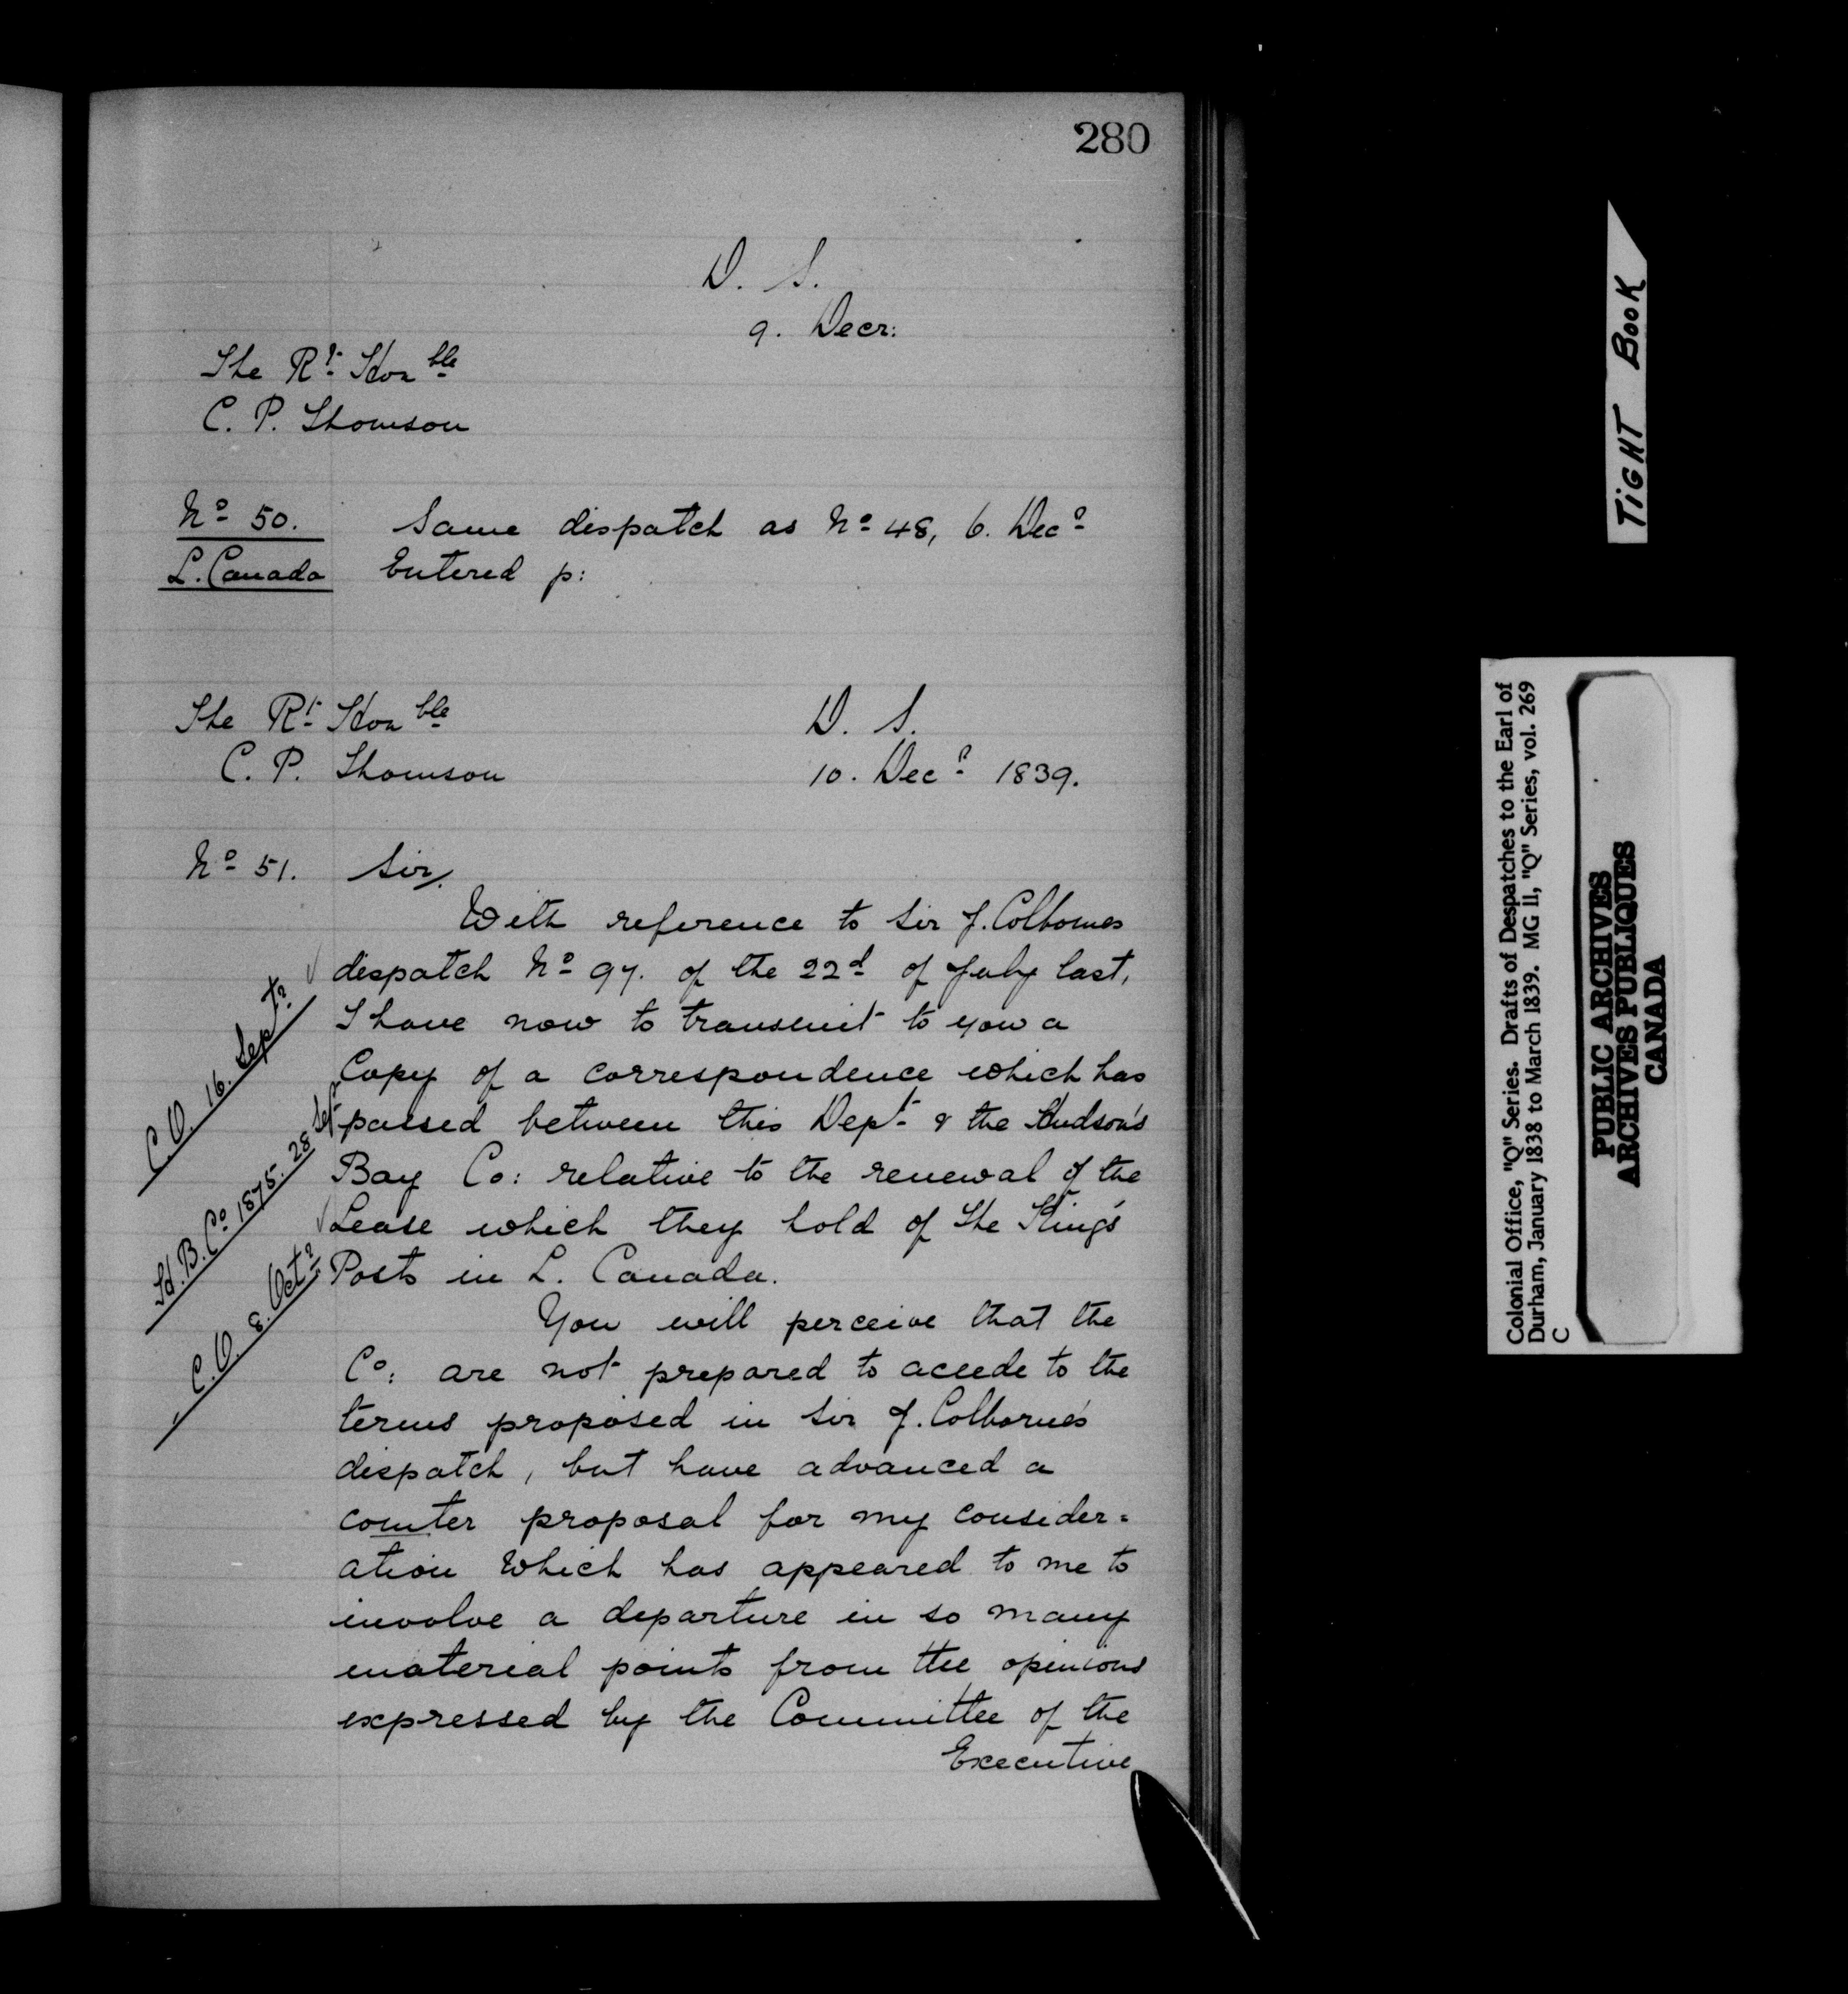 280
D. S.
9. Decr:
The Rt Honble
C. P. Thomson
No 50. Same dispatch as No 48, 6. Decr
L. Canada Entered p:
The Rt Honble D. S.
C. P. Thomson 10. Decr 1839.
No 51. Sir,
With reference to Sir J. Colbornes
dispatch No 97. of the 22d of July last,
I have now to transmit to you a
Copy of a correspondence which has
passed between this Dept & the Hudson's
Bay Co: relative to the renewal of the
Lease which they hold of the King's
Posts in L. Canada.
C. O. 16. Sept.
H. B. Co 1875. 28 Sept
C. O. 8. Octr
You will perceive that the
Co: are not prepared to accede to the
terms proposed in Sir J. Colborne's
dispatch, but have advanced a
counter proposal for my consider=
ation which has appeared to me to
involve a departure in so many
material points from the opinions
expressed by the Committee of the
Executive
TIGHT BOOK
Colonial Office, "Q" Series. Drafts of Despatches to the Earl of
Durham, January 1838 to March 1839. MG 11, "Q" Series, vol. 269
C
PUBLIC ARCHIVES
ARCHIVES PUBLIQUES
CANADA